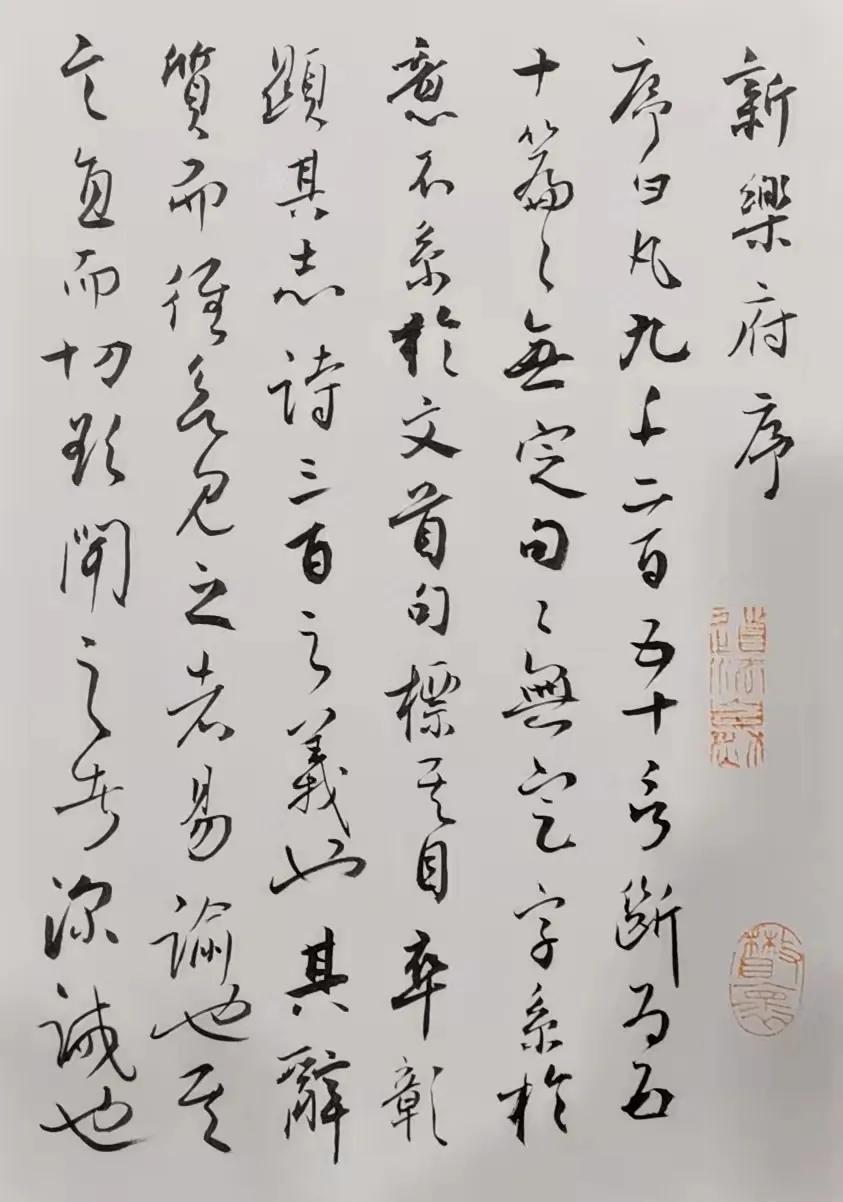 新樂府序
序曰凡九千二百五十言斷為五
十篇〻無定句〻無定字系於
意不系於文首句標其目卒彰
顯其志詩三百之義也其辭
質而徑欲見之者易諭也其
言直而切欲聞之者深誡也